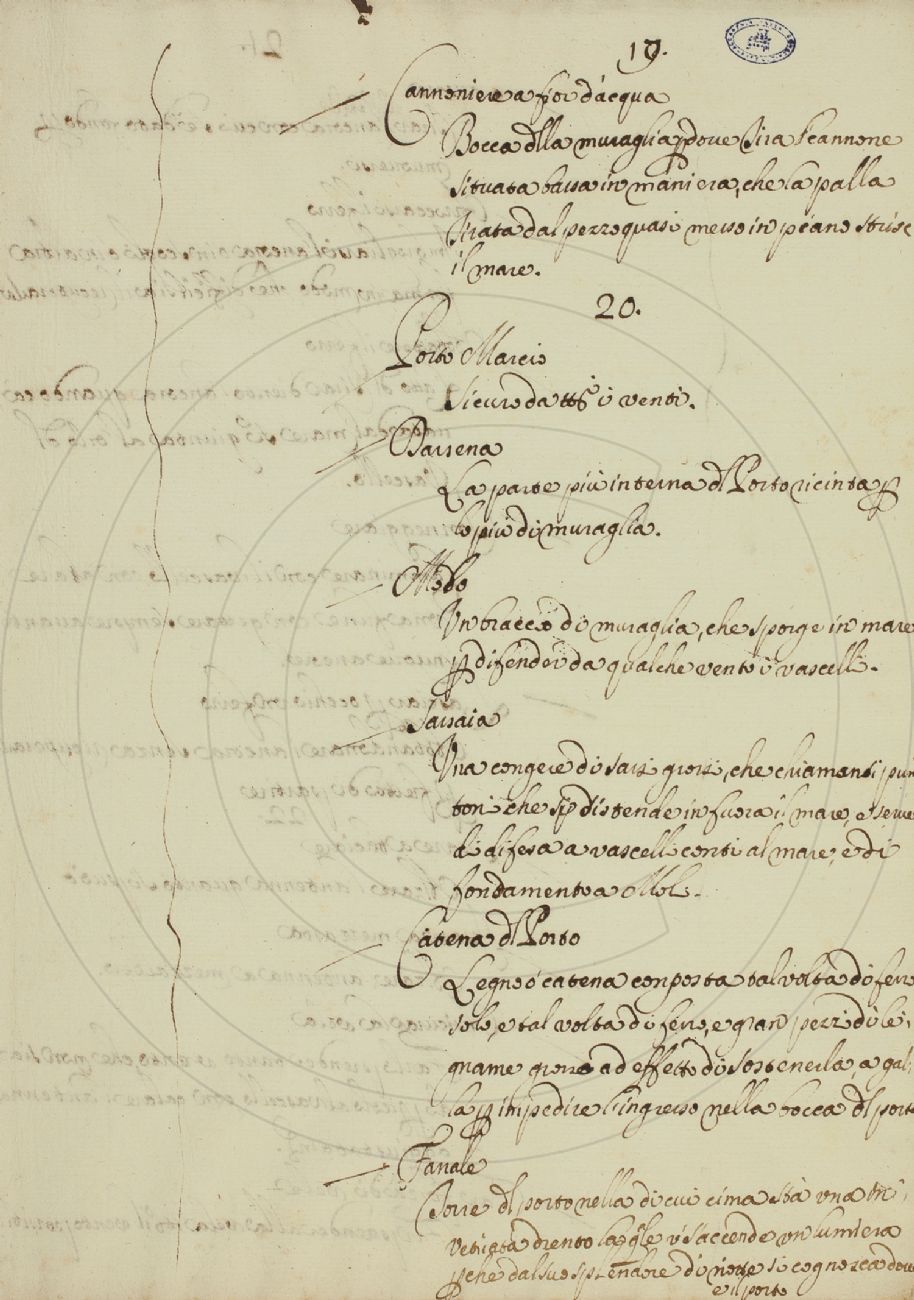 19.
Cannoniere a fior d'acqua
Bocca dlla muraglia p dove tira il cannone
situata bassa in maniera, che la palla
tirata dal pezzo quasi messo in piano strisc
il mare.
20.
Porto Marcio
sicuro da tti i venti.
Darsena
La parte più interna dl Porto ricinta p
lo più di muraglia.
Molo
Un braccio di muraglia, che sporge in mare
p difender da qualche vento i vascelli.
Sassaia
Una congerie di sassi grossi, che chiamansi pun
toni che si distende in fuora il mare, e serve
di difesa a vascelli conti al mare, e di
fondamento a Moli.
Catena dl Porto
Legno ó catena conposta tal volta di ferro
solo, e tal volta di ferro, e gran pezzi di le:
gname grossa ad effetto di sostenerla, a gal:
la p impedire l'ingresso nella bocca dl porto
Fanale
Torre dl porto nella di cui cima stà vna in:
vetriata drento la qle vi s'accende vn lumiera
pche dal suo splendore di notte si cognosca dove
e il porto